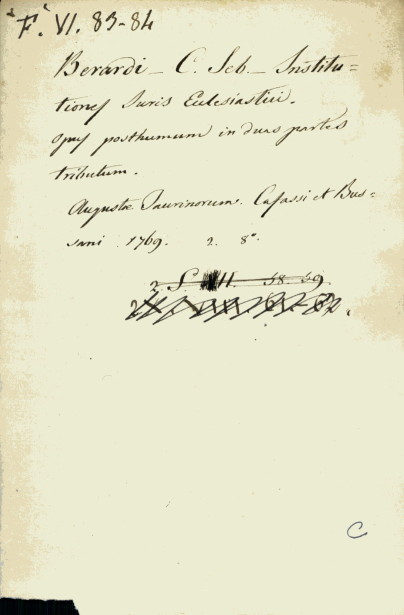 "F." VI. 83-84
Berardi - C. Seb. - Institu=
tiones Juris Ecclesiastici.
opus posthumum in duas partes
tributum.
Augustae Taurinorum. Cafassi et Bus=
sani 1769. 2. 8°.
2 S. II. 38. 39
C